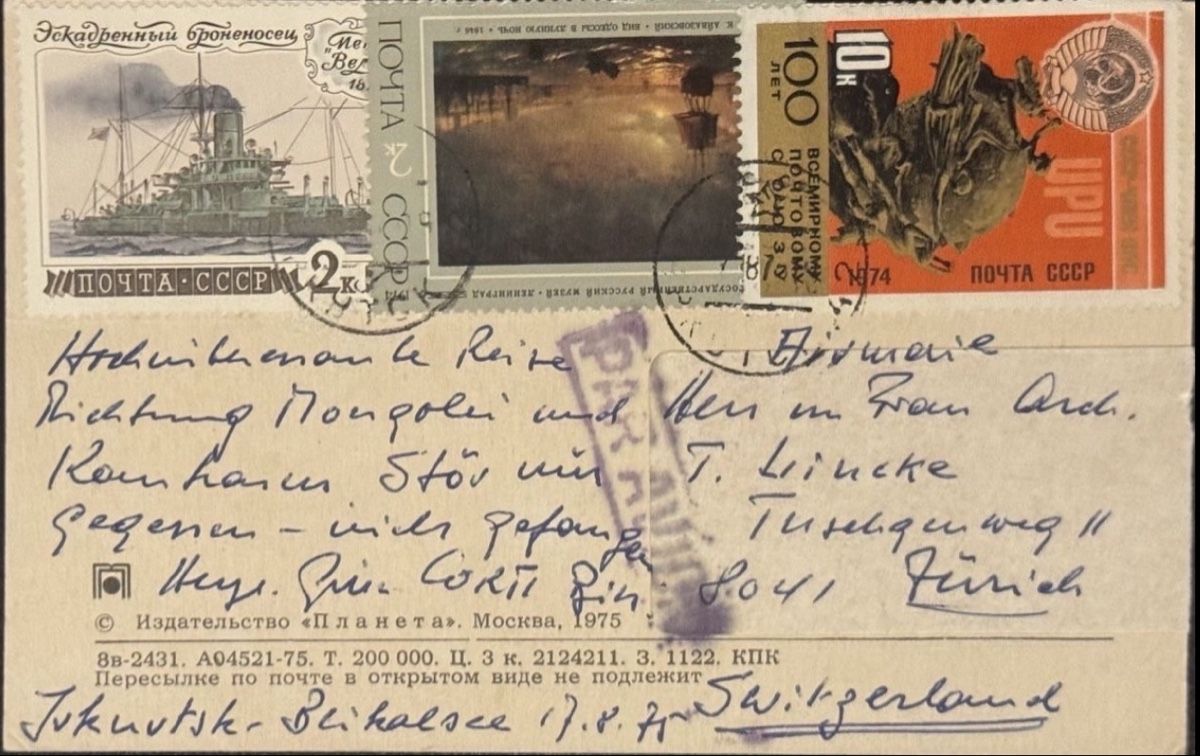 Эскадренный броненосец
ПОЧТА·СССР
2 к
ПОЧТА СССР
2 к
К АЙВАЗОВСКИЙ · ВИД ОДЕССЫ В ЛУННУЮ НОЧЬ · 1846 г
ГОСУДАРСТВЕННЫЙ РУССКИЙ МУЗЕЙ · ЛЕНИНГРАД
10 к
100
ЛЕТ
ВСЕМИРНОМУ
ПОЧТОВОМУ
СОЮЗУ
UPU
1974 ПОЧТА СССР
PAR AVION
Hochinteressante Reise
Richtung Mongolei und
Stör nur
gegessen – nicht gefangen
Airmail
Herr u Frau Arch.
T. Lincke
8041 Zürich
Switzerland
© Издательство «Планета». Москва, 1975
8в-2431. А04521-75. Т. 200 000. Ц. 3 к. 2124211. З. 1122. КПК
Пересылке по почте в открытом виде не подлежит
Irkutsk - Beikalsee 17.8.75